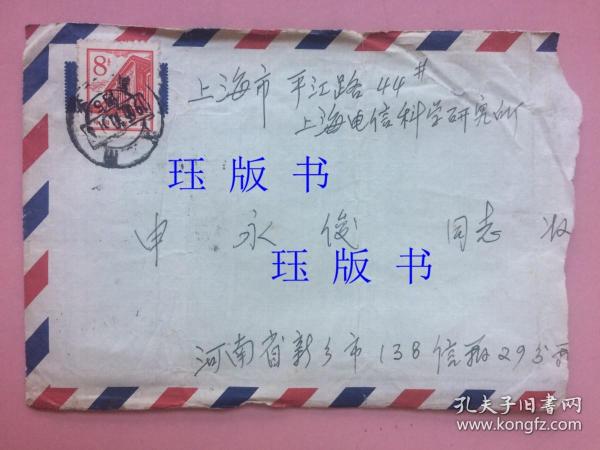 8分
上海市 平江路 44#
上海电信科学研究所
珏 版 书
申 永 俊 同志 收
珏 版 书
河南省新乡市138信箱29分箱
孔夫子旧书网
www.kongfz.com